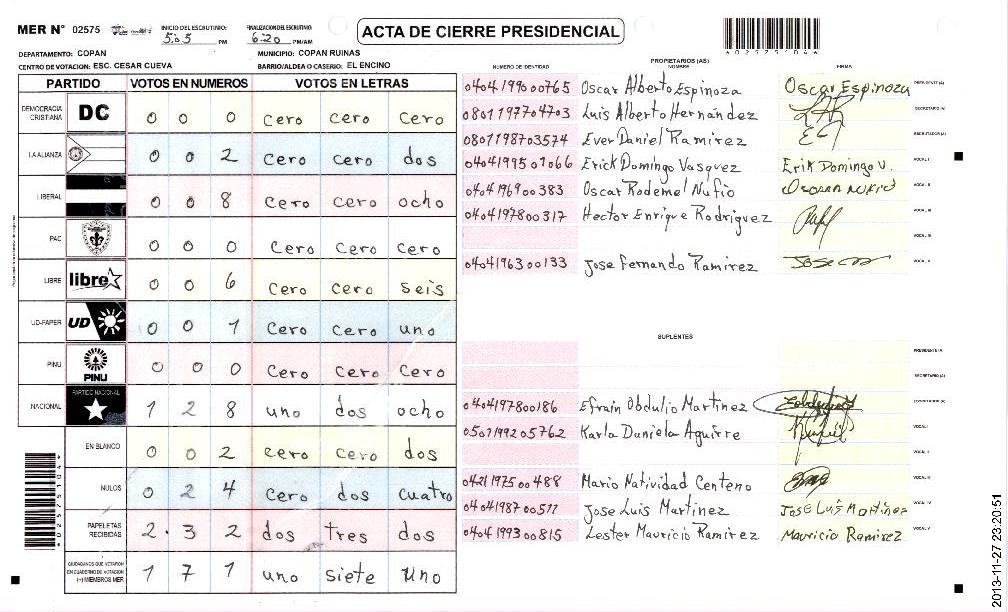 MER Nº 02575
INICIO DEL ESCRUTINIO: 5:05 PM
FINALIZACION DEL ESCRUTINIO: 6:20 PM/AM
ACTA DE CIERRE PRESIDENCIAL
*02575104*
DEPARTAMENTO: COPAN
MUNICIPIO: COPAN RUINAS
CENTRO DE VOTACION: ESC. CESAR CUEVA
BARRIO/ALDEA O CASERIO: EL ENCINO
PARTIDO VOTOS EN NUMEROS VOTOS EN LETRAS
DEMOCRACIA CRISTIANA DC 0 0 0 cero cero cero
LA ALIANZA 0 0 2 cero cero dos
LIBERAL 0 0 8 cero cero ocho
PAC 0 0 0 cero cero cero
LIBRE libre 0 0 6 cero cero seis
UD-FAPER UD 0 0 1 cero cero uno
PINU PINU 0 0 0 cero cero cero
NACIONAL PARTIDO NACIONAL 1 2 8 uno dos ocho
EN BLANCO 0 0 2 cero cero dos
NULOS 0 2 4 cero dos cuatro
PAPELETAS RECIBIDAS 2 3 2 dos tres dos
CIUDADANOS QUE VOTARON EN CUADERNO DE VOTACION (+) MIEMBROS MER 1 7 1 uno siete uno
*02575104*
PROPIETARIOS (AS)
NUMERO DE IDENTIDAD NOMBRE FIRMA
0404199000765 Oscar Alberto Espinoza Oscar Espinoza PRESIDENTE (A)
0801197704703 Luis Alberto Hernández SECRETARIO (A)
0801198703574 Ever Daniel Ramirez ESCRUTADOR (A)
0404199501066 Erick Domingo Vasquez Erik Domingo V. VOCAL I
0404196900383 Oscar Rodemel Nufio OSCAR NUFIO VOCAL II
0404197800317 Hector Enrique Rodriguez VOCAL III
VOCAL IV
0404196300133 Jose Fernando Ramirez JOSE VOCAL V
SUPLENTES
PRESIDENTE (A)
SECRETARIO (A)
0404197800186 Efrain Obdulio Martinez ESCRUTADOR (A)
0501199205762 Karla Daniela Aguirre VOCAL I
VOCAL II
0421197500488 Mario Natividad Centeno VOCAL III
0404198700511 Jose Luis Martinez Jose Luis Martinez VOCAL IV
0404199300815 Lester Mauricio Ramirez Mauricio Ramirez VOCAL V
2013-11-27 23:20:51